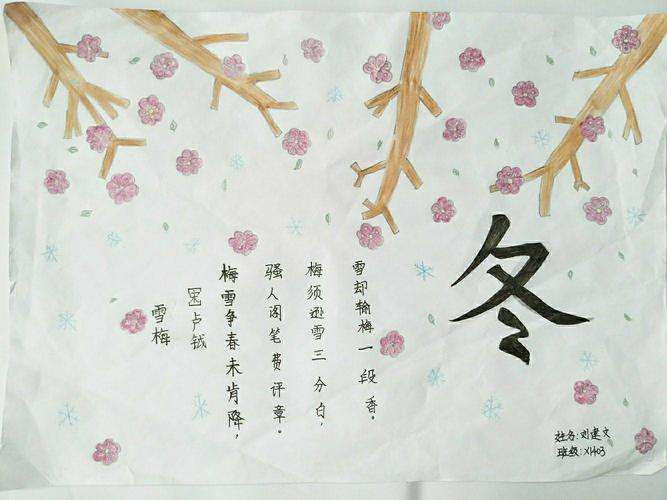 冬
雪梅
[宋]卢钺
梅雪争春未肯降,
骚人阁笔费评章。
梅须逊雪三分白,
雪却输梅一段香。
姓名:刘建文
班级:X1403